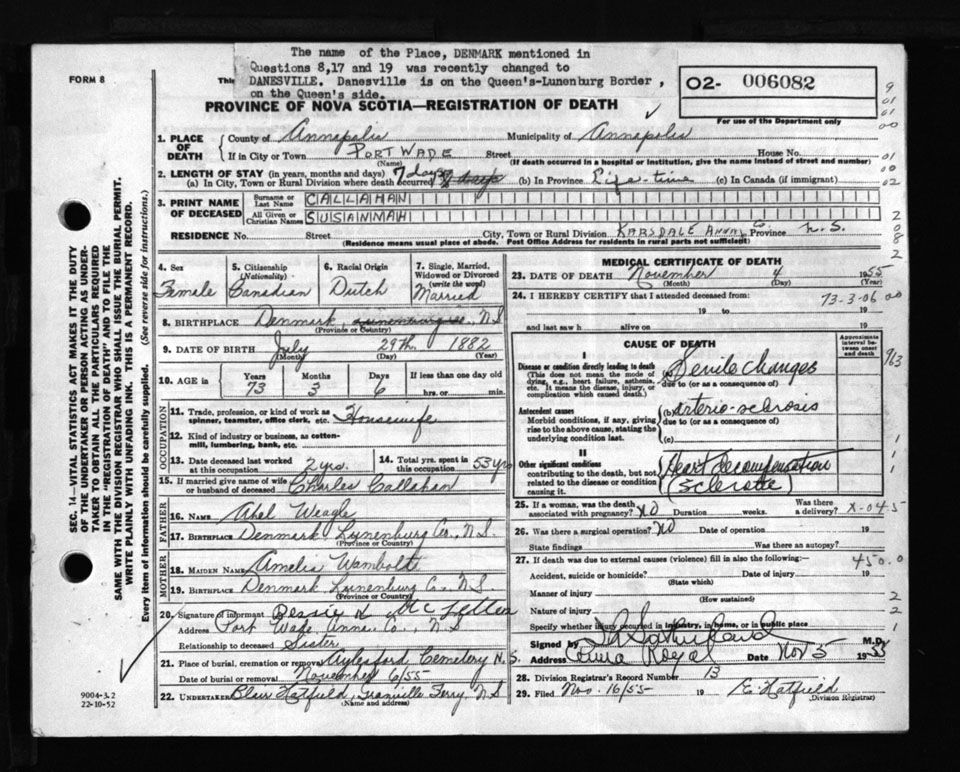 The name of the Place, DENMARK mentioned in
Questions 8,17 and 19 was recently changed to
DANESVILLE. Danesville is on the Queen's-Lunenburg Border,
on the Queen's side.
FORM 8
This
O2- 006082
For use of the Department only
PROVINCE OF NOVA SCOTIA—REGISTRATION OF DEATH
1. PLACE OF DEATH
County of Annapolis Municipality of Annapolis
If in City or Town PORT WADE Street House No.
(Name) (If death occurred in a hospital or institution, give the name instead of street and number)
2. LENGTH OF STAY (in years, months and days)
(a) In City, Town or Rural Division where death occurred 7 days (b) In Province Life-time (c) In Canada (if immigrant)
3. PRINT NAME OF DECEASED
Surname or Last Name CALLAHAN
All Given or Christian Names SUSANNAH
RESIDENCE No. Street City, Town or Rural Division KARSDALE ANNA. Co. Province N.S.
(Residence means usual place of abode. Post Office Address for residents in rural parts not sufficient)
4. Sex Female
5. Citizenship (Nationality) Canadian
6. Racial Origin Dutch
7. Single, Married, Widowed or Divorced (write the word) Married
8. BIRTHPLACE Denmark N.S
(Province or Country)
9. DATE OF BIRTH July 29th 1882
(Month) (Day) (Year)
10. AGE in Years 73 Months 3 Days 6 If less than one day hrs. or min.
OCCUPATION
11. Trade, profession, or kind of work as spinner, teamster, office clerk, etc. Housewife
12. Kind of industry or business, as cotton-mill, lumbering, bank, etc.
13. Date deceased last worked at this occupation 2 yrs.
14. Total yrs. spent in this occupation 53 yrs
15. If married give name of wife or husband of deceased Charles Callahan
FATHER
16. NAME Abel Weagle
17. BIRTHPLACE Denmark Lunenburg Co., N.S.
(Province or Country)
MOTHER
18. MAIDEN NAME Amelia Wambolt
19. BIRTHPLACE Denmark Lunenburg Co., N.S.
(Province or Country)
20. Signature of informant Bessie L
Address Port Wade, Anna. Co., N S
Relationship to deceased Sister
21. Place of burial, cremation or removal Aylesford Cemetery N.S.
Date of burial or removal November 6/55
22. UNDERTAKER Blair Hatfield, Granville Ferry, N.S
(Name and address)
MEDICAL CERTIFICATE OF DEATH
23. DATE OF DEATH November 4 1955
(Month) (Day) (Year)
24. I HEREBY CERTIFY that I attended deceased from:
73-3-06 00
19 to 19
and last saw h alive on 19
CAUSE OF DEATH
Approximate interval between onset and death
I
Disease or condition directly leading to death
(This does not mean the mode of dying, e.g., heart failure, asthenia, etc. It means the disease, injury, or complication which caused death.)
(a) Senile changes
due to (or as a consequence of)
Antecedent causes
Morbid conditions, if any, giving rise to the above cause, stating the underlying condition last.
(b) Arterio-sclerosis
due to (or as a consequence of)
(c)
II
Other significant conditions
contributing to the death, but not related to the disease or condition causing it.
Heart decompensation
(sclerotic)
25. If a woman, was the death associated with pregnancy? NO Duration weeks. Was there a delivery? X-045
26. Was there a surgical operation? NO Date of operation 19
State findings Was there an autopsy?
27. If death was due to external causes (violence) fill in also the following:— 450.0
Accident, suicide or homicide? Date of injury 19
(State which)
Manner of injury
(How sustained)
Nature of injury
Specify whether injury occurred in industry, in home, or in public place
Signed by M.D.
Address Anna Royal Date Nov 5 1955
28. Division Registrar's Record Number 13
29. Filed Nov. 16/55 19 E. Hatfield
(Division Registrar)
SEC. 14—VITAL STATISTICS ACT MAKES IT THE DUTY
OF THE UNDERTAKER OR PERSON ACTING AS UNDER-
TAKER TO OBTAIN ALL THE PARTICULARS REQUIRED
IN THE "REGISTRATION OF DEATH" AND TO FILE THE
SAME WITH THE DIVISION REGISTRAR WHO SHALL ISSUE THE BURIAL PERMIT.
WRITE PLAINLY WITH UNFADING INK. THIS IS A PERMANENT RECORD.
Every item of information should be carefully supplied. (See reverse side for instructions.)
9004-3.2
22-10-52